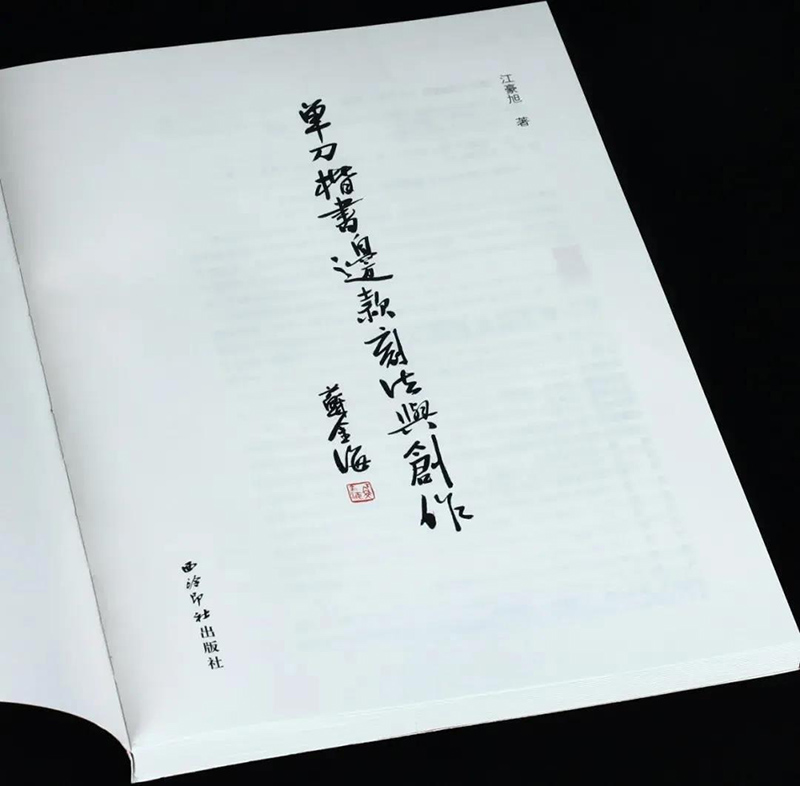 江豪旭 著
单刀楷書邊款刻法與創作
蘇金海
西泠印社出版社